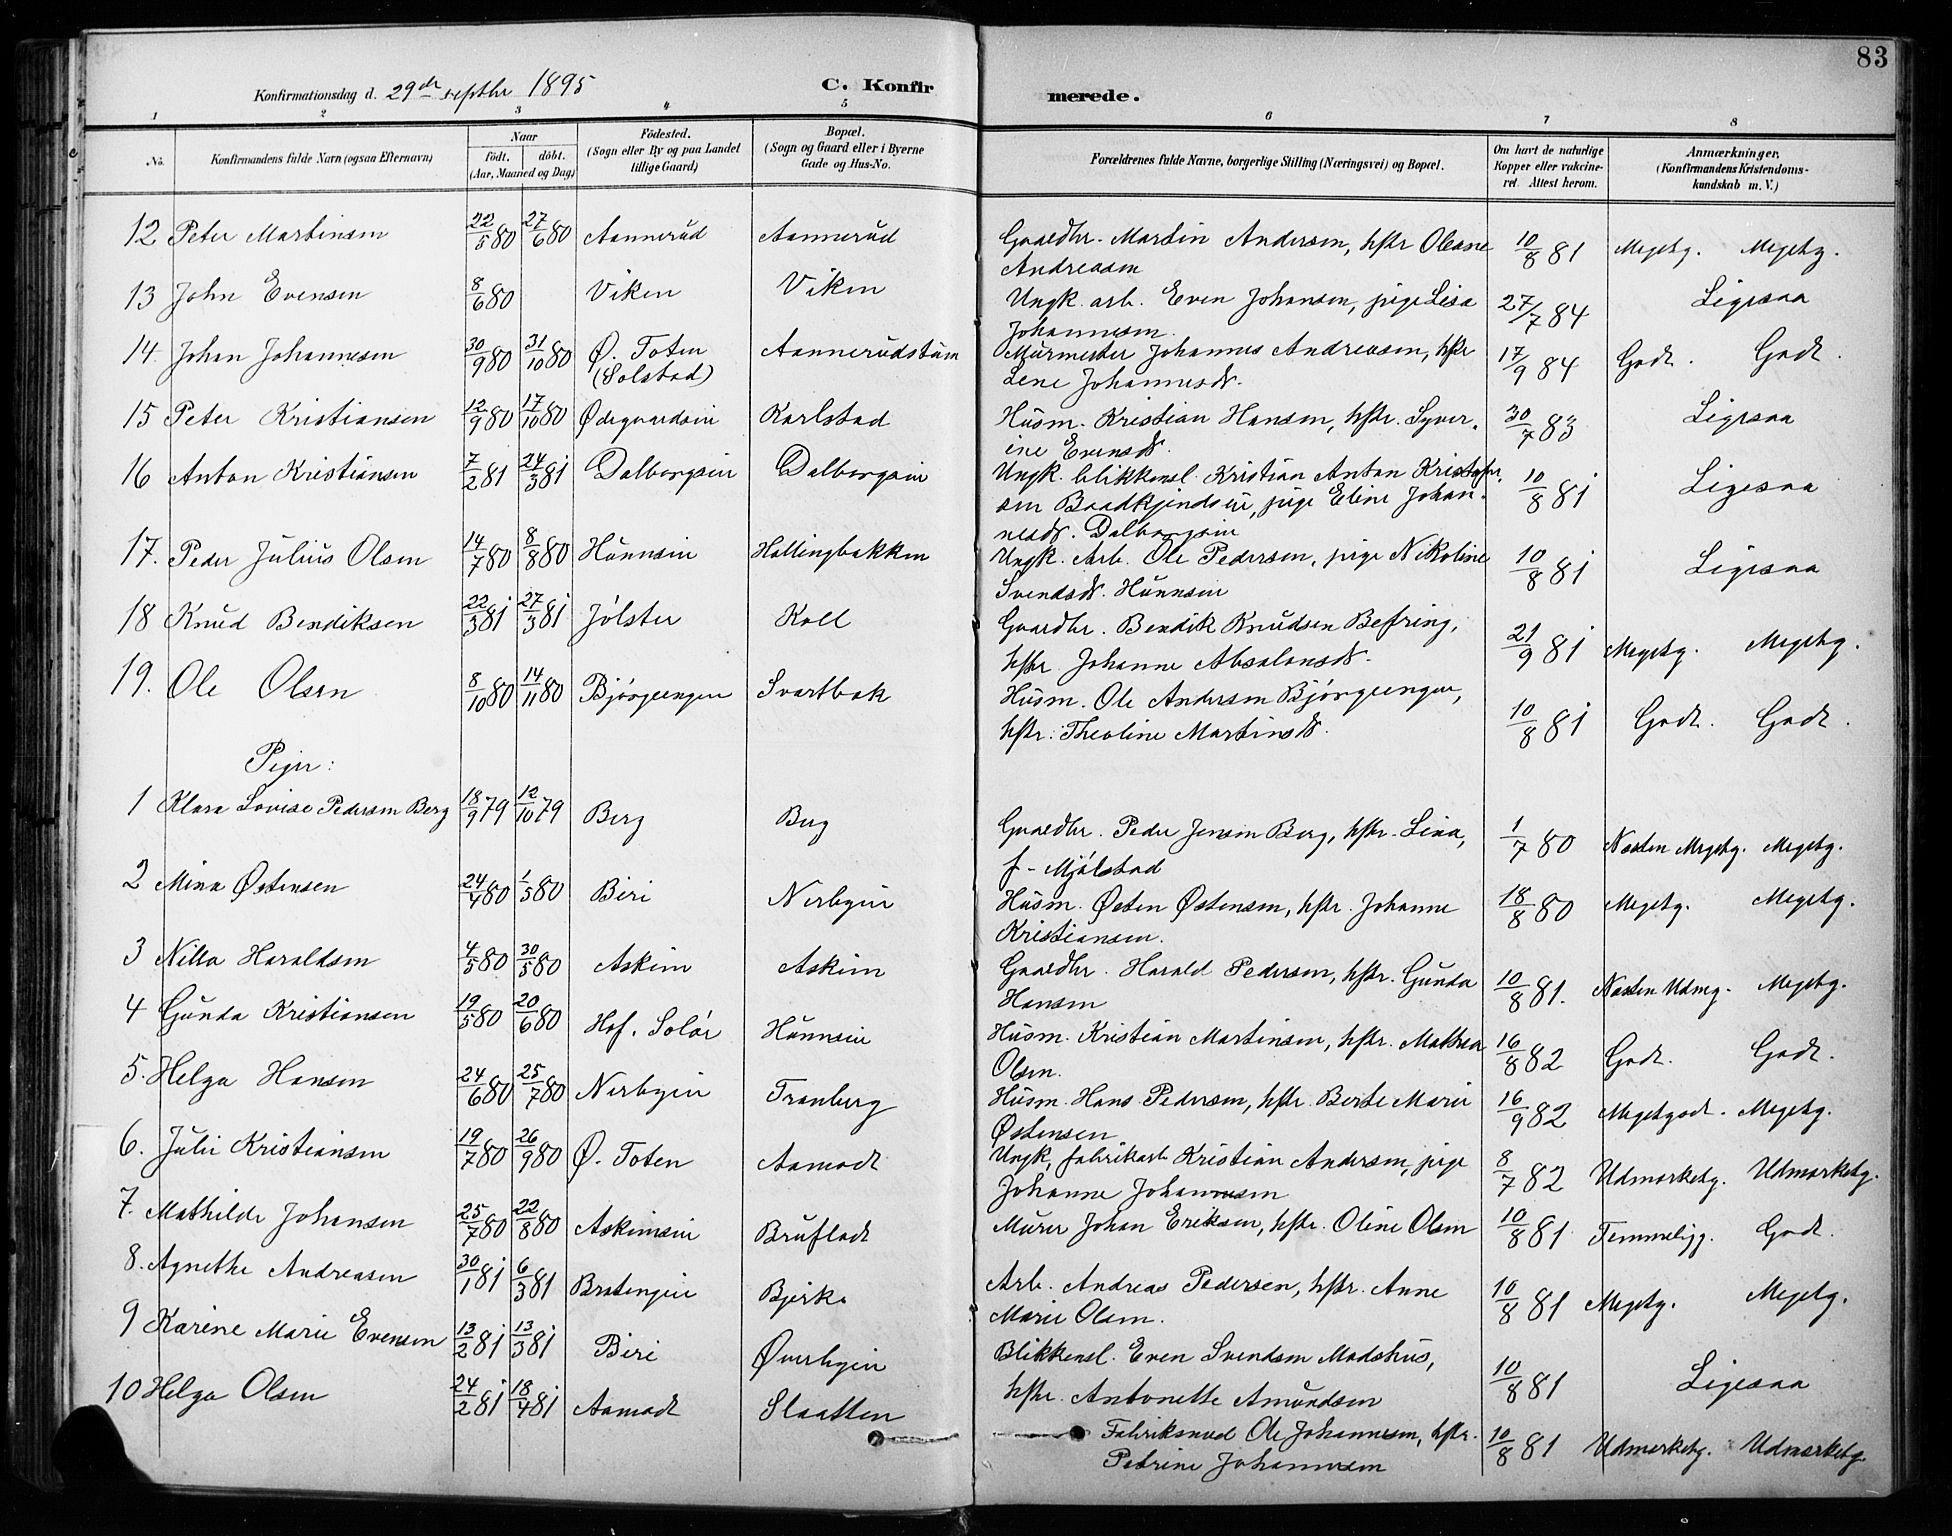 83
Konfirmationsdag d. 29de septbr 1895
C. Konfirmerede.
1 2 3 4 5 6 7 8
No. Konfirmandens fulde Navn (ogsaa Efternavn) Naar födt. döbt. (Aar, Maaned og Dag) Födested. (Sogn eller By og paa Landet tillige Gaard) Bopæl. (Sogn og Gaard eller i Byerne Gade og Hus-No. Forældrenes fulde Navne, borgerlige Stilling (Næringsvei) og Bopæl. Om havt de naturlige Kopper eller vakcineret. Attest herom. Anmærkninger. (Konfirmandens Kristendomskundskab m. V.)
12 Peter Martinsen 22/5 80 27/6 80 Aannerud Aannerud Gaardbr. Martin Andersen, hstr Oleane 10/8 81 Megetg. Megetg.
Andreasen
13 John Evensen 8/6 80 Viken Viken Ungk. arb. Even Johansen, pige Lisa 27/7 84 Ligesaa
Johannesen.
14. Johan Johannesen 30/9 80 31/10 80 Ø. Toten Aannerudstuen Murmester Johannes Andreasen, hstr 17/9 84 Godt. Godt.
(Solstad) Lene Johannesdt.
15 Peter Kristiansen 12/9 80 17/10 80 Ødegaardseie Karlstad Husm. Kristian Hansen, hstr. Syver- 30/7 83 Ligesaa
ine Evensdt.
16 Anton Kristiansen 7/2 81 24/3 81 Dalborgeie Dalborgeie Ungk. blikkensl. Kristian Anton Kristofer- 10/8 81 Ligesaa
sen Baadkjindseie, pige Eline Johan-
nesdt. Dalborgeie
17. Peder Julius Olsen 14/7 80 8/8 80 Hunnseie Hallingbakken Ungk. Arb. Ole Pedersen, pige Nikoline 10/8 81 Ligesaa
Svendsdt. Hunnseie
18 Knud Bendiksen 22/3 81 27/3 81 Jölster Koll Gaardbr. Bendik Knudsen Befring, 21/9 81 Megetg. Megetg.
hstr. Johanne Absalonsdt.
19. Ole Olsen 8/10 80 14/11 80 Bjørgeengen Svartbak Husm. Ole Andersen Bjørgeengen, 10/8 81 Godt. Godt.
hstr: Theoline Martinsdt.
Piger:
1 Klara Lovise Pedersen Berg 18/9 79 12/10 79 Berg Berg Gaardbr. Peder Jensen Berg, hstr. Lina, 1/7 80 Næsten Megetg. Megetg.
f. Mjölstad
2 Mina Østensen 24/4 80 1/5 80 Biri Nerbyeie Husm. Østen Østensen, hstr. Johanne 18/8 80 Megetg. Megetg.
Kristiansen.
3 Nilla Haraldsen 4/5 80 30/5 80 Askim Askim Gaardbr. Harald Pedersen, hstr. Gunda 10/8 81. Næsten Udmg. Megetg.
Hansen
4 Gunda Kristiansen 19/5 80 20/6 80 Hof. Solör Hunnseie Husm. Kristian Martinsen, hstr. Mathea 16/8 82 Godt. Godt.
Olsen.
5. Helga Hansen 24/6 80 25/7 80 Nerbyeie Tranberg Husm. Hans Pedersen, hstr. Berte Marie 16/9 82 Megetgodt. Megetg.
Østensen
6. Julie Kristiansen 19/7 80 26/9 80 Ø. Toten Aamodt Ungk, fabrikarb. Kristian Andersen, pige 8/7 82 Udmærketg. Udmærketg.
Johanne Johannesen
7. Mathilde Johansen 25/7 80 22/8 80 Askimseie Brufladt Murer Johan Eriksen, hstr. Oline Olsen 10/8 81 Temmeligg. Godt.
8. Agnethe Andreasen 30/1 81 6/3 81 Bratengeie Bjerke Arb. Andreas Pedersen, hstr. Anne 10/8 81 Megetg. Megetg.
Marie Olsen.
9 Karine Marie Evensen 13/2 81 13/3 81 Biri Øverbyeie Blikkensl. Even Svendsen Madshus, 10/8 81 Ligesaa
hstr. Antonette Amundsen
10 Helga Olsen 24/2 81 18/4 81 Aamodt Slaatten Fabriksmed Ole Johannesen, hstr. 10/8 81 Udmærketg. Udmærketg.
Petrine Johannesen